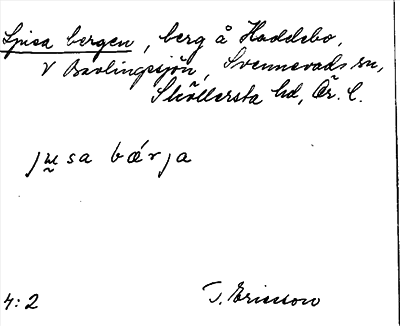 Ljusa bergen, berg å Haddebo,
V Bavlingssjön, Svennevads sn,
Sköllersta hd, Ör. l.
jusa bærja
4:2
T. Ericsson